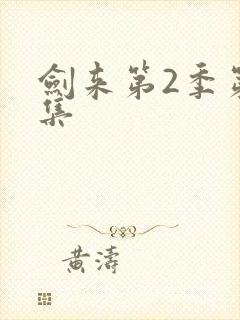 劍来第2季第
集
黄濤